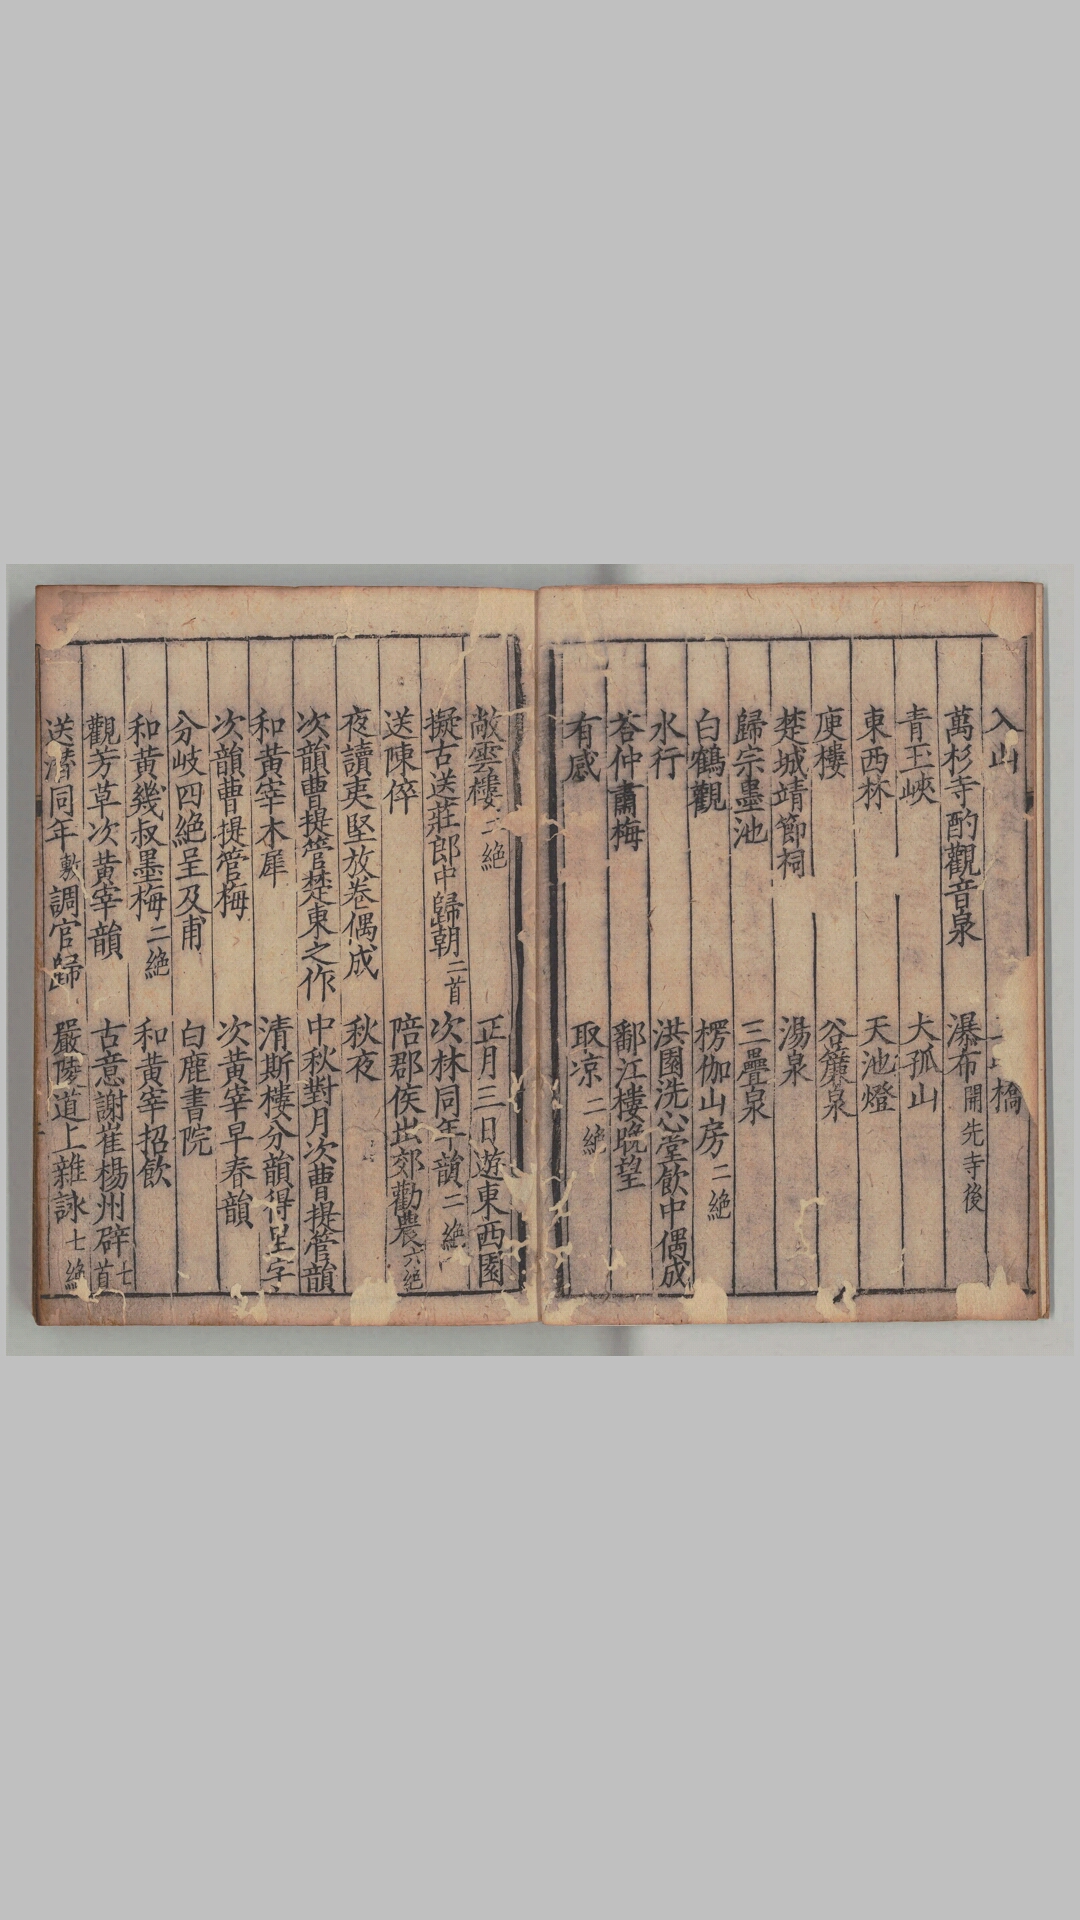 入山 橋
萬杉寺酌觀音泉 瀑布開先寺後
青玉峽 大孤山
東西林 天池燈
庾樓 谷簾泉
楚城靖節祠 湯泉
歸宗墨池 三疊泉
白鶴觀 楞伽山房二絶
水行 洪園洗心堂飲中偶成
荅仲肅梅 鄱江樓晚望
有感 取凉二絶
敞雲樓二絶 正月三日遊東西園
擬古送莊郎中歸朝二首 次林同年韻二絶
送陳倅 陪郡侯出郊勸農六絶
夜讀夷堅放卷偶成 秋夜
次韻曹提管楚東之作 中秋對月次曹提管韻
和黃宰木犀 清斯樓分韻得星字
次韻曹提管梅 次黃宰早春韻
分岐四絶呈及甫 白鹿書院
和黃幾叔墨梅二絶 和黃宰招飲
觀芳草次黃宰韻 古意謝崔楊州辟七首
送潛同年敷調官歸 嚴陵道上雜詠七絶